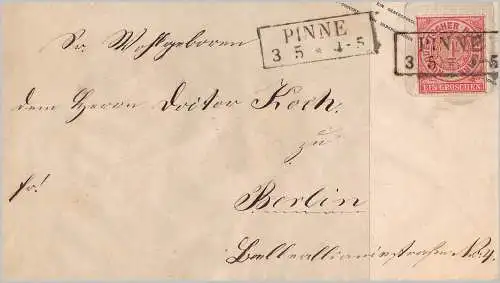 PINNE
3 5 * 4-5
PINNE
3 5 5
EIN GROSCHEN
Sr. Wohlgeboren
dem Herrn Doctor Koch.
zu
fr!
Berlin
Bellealliancestraße No. 4.